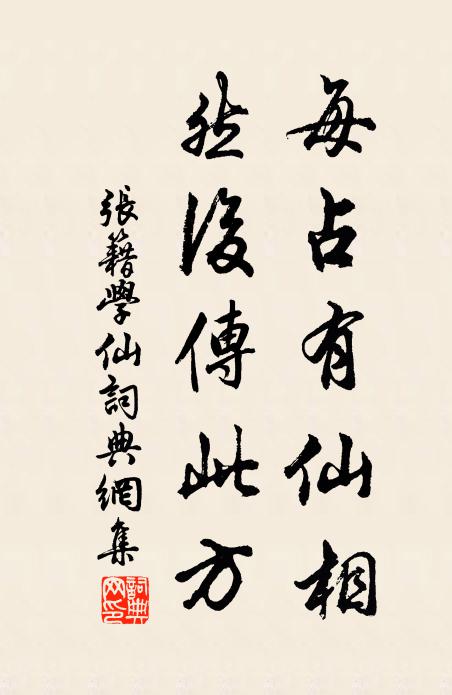 每占有仙相
然後傳此方
張籍學仙詞典網集
詞典網印